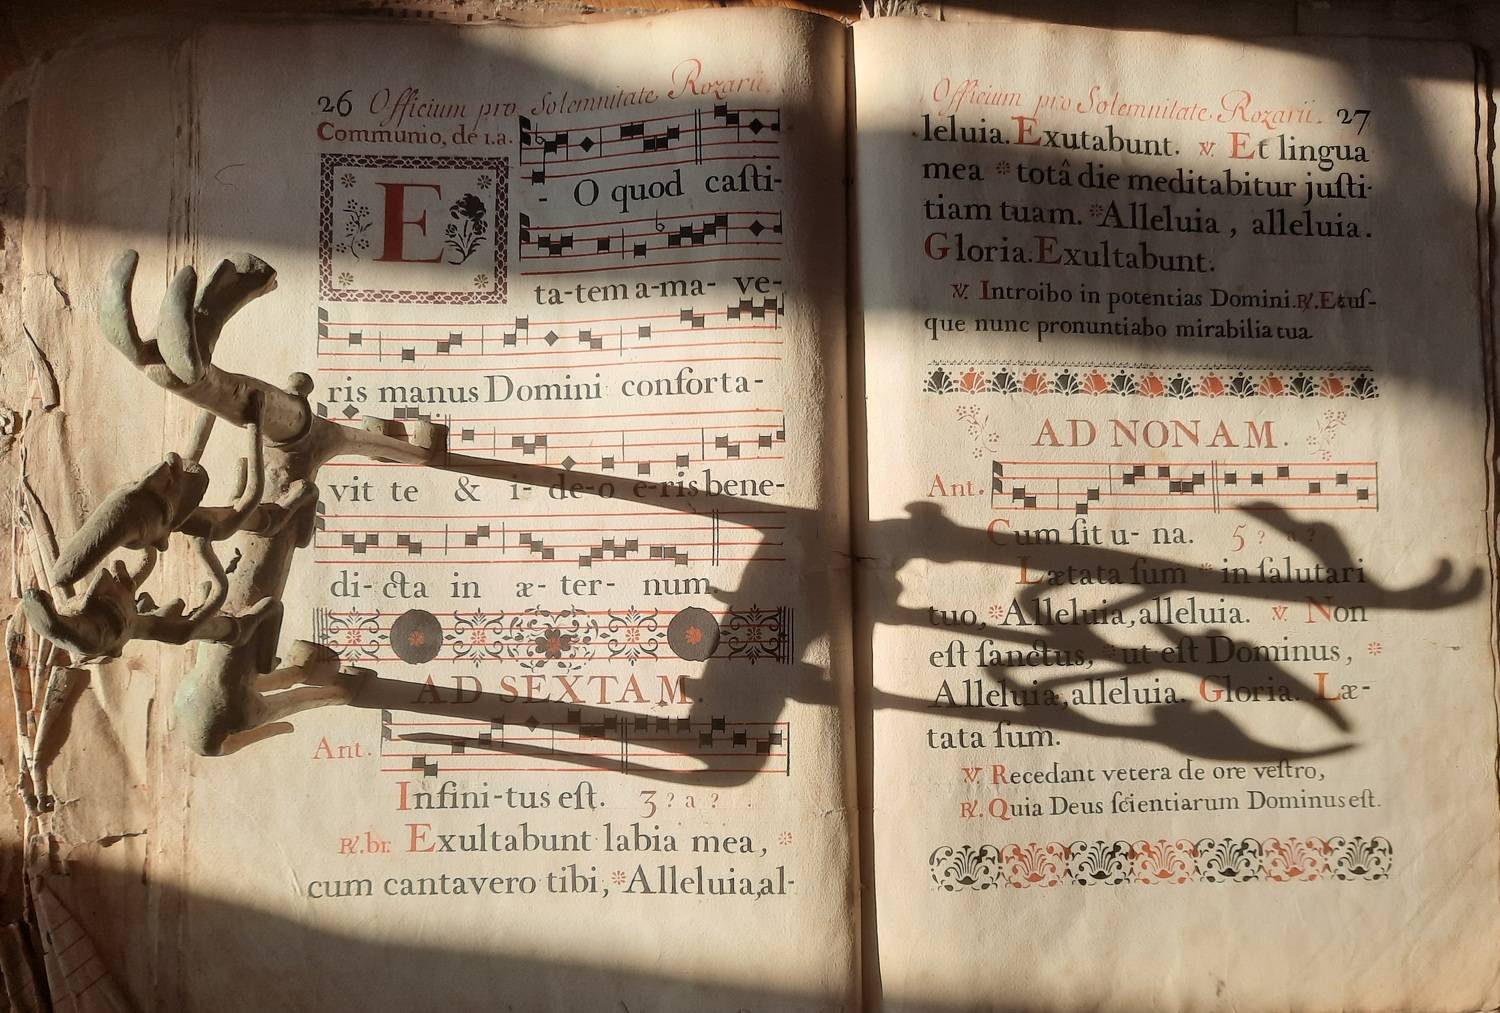 26 Officium pro Solemnitate Rozarii.
Communio, de 1.a.
E - O quod casti-
ta-tem a-ma- ve-
ris manus Domini conforta-
vit te & i- de-o e-ris bene-
di- cta in æ- ter- num.
AD SEXTAM.
Ant.
Infini-tus est. 3 ? a ? .
℟.br. Exultabunt labia mea, *
cum cantavero tibi,*Alleluia,al-
Officium pro Solemnitate Rozarii. 27
leluia. Exutabunt. ℣. Et lingua
mea * totâ die meditabitur justi-
tiam tuam. *Alleluia, alleluia.
Gloria. Exultabunt.
℣. Introibo in potentias Domini.℟.Etus-
que nunc pronuntiabo mirabilia tua.
AD NONAM.
Ant.
Cum sit u- na. 5 ? a ?
Lætata sum * in salutari
tuo,*Alleluia,alleluia. ℣. Non
est sanctus, *ut est Dominus, *
Alleluia,alleluia. Gloria. Læ-
tata sum.
℣. Recedant vetera de ore vestro,
℟. Quia Deus scientiarum Dominus est.